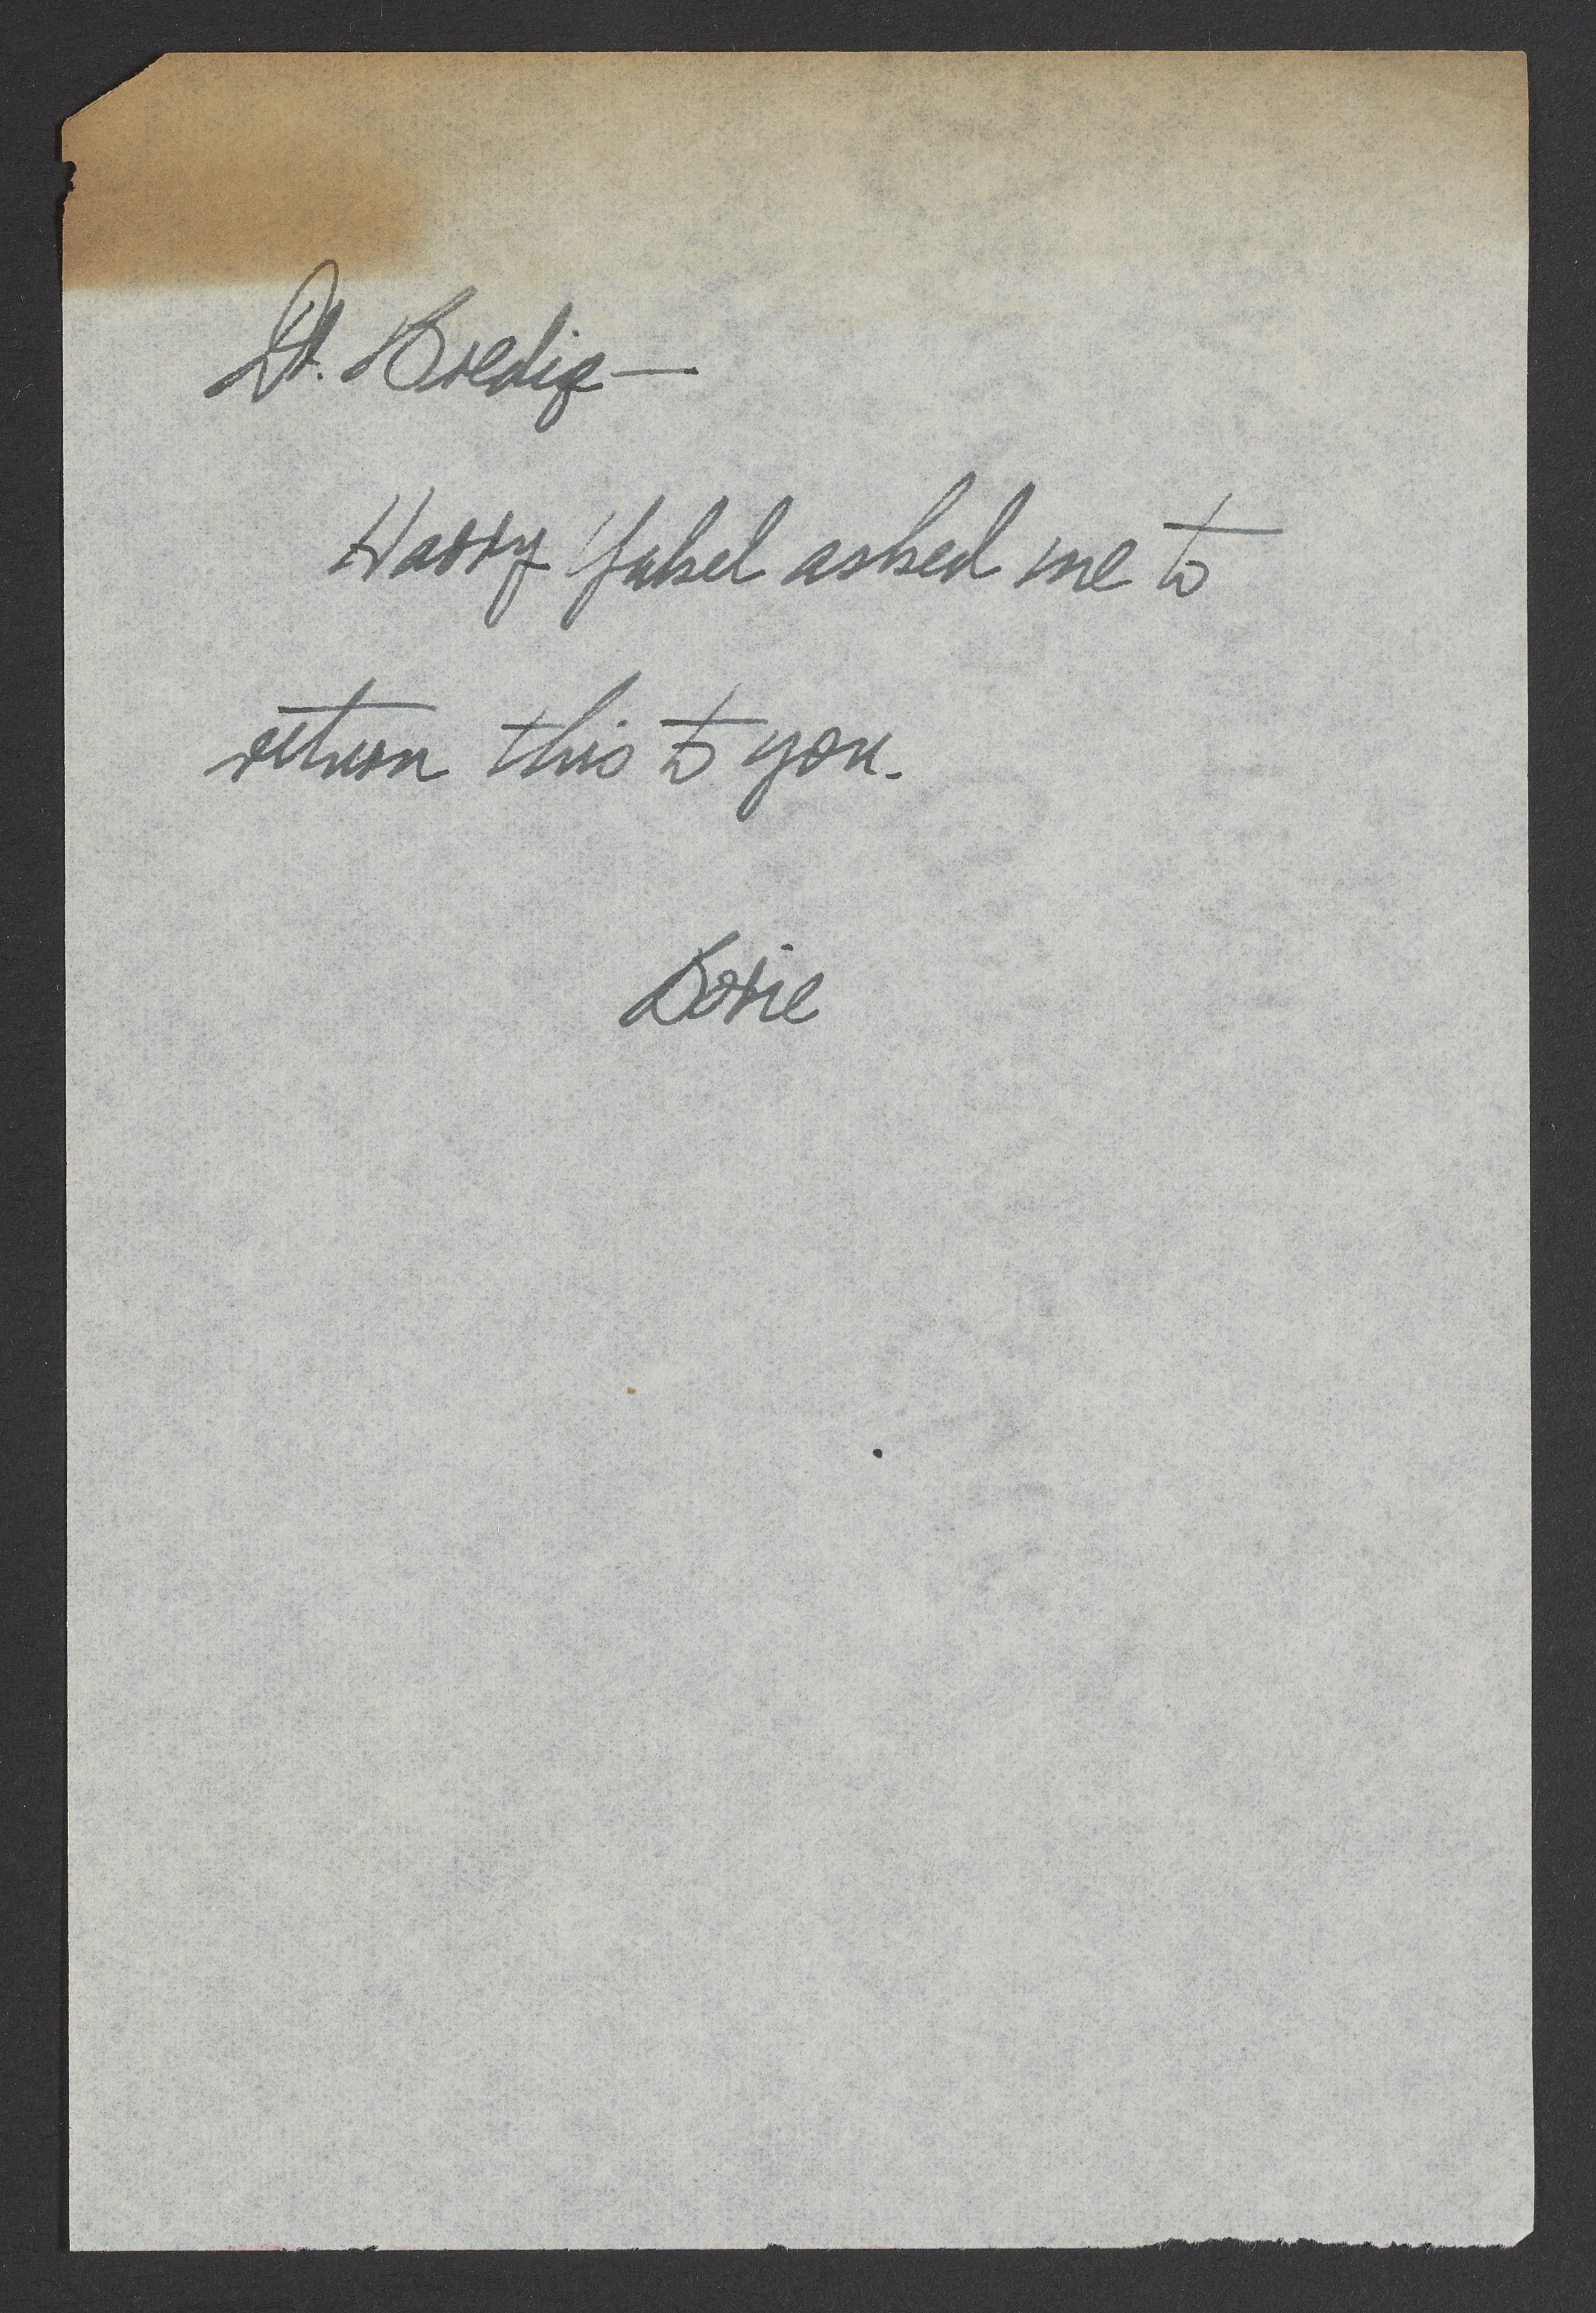 Dr. Bredig—
Harry Yukel asked me to
return this to you.
Dorie